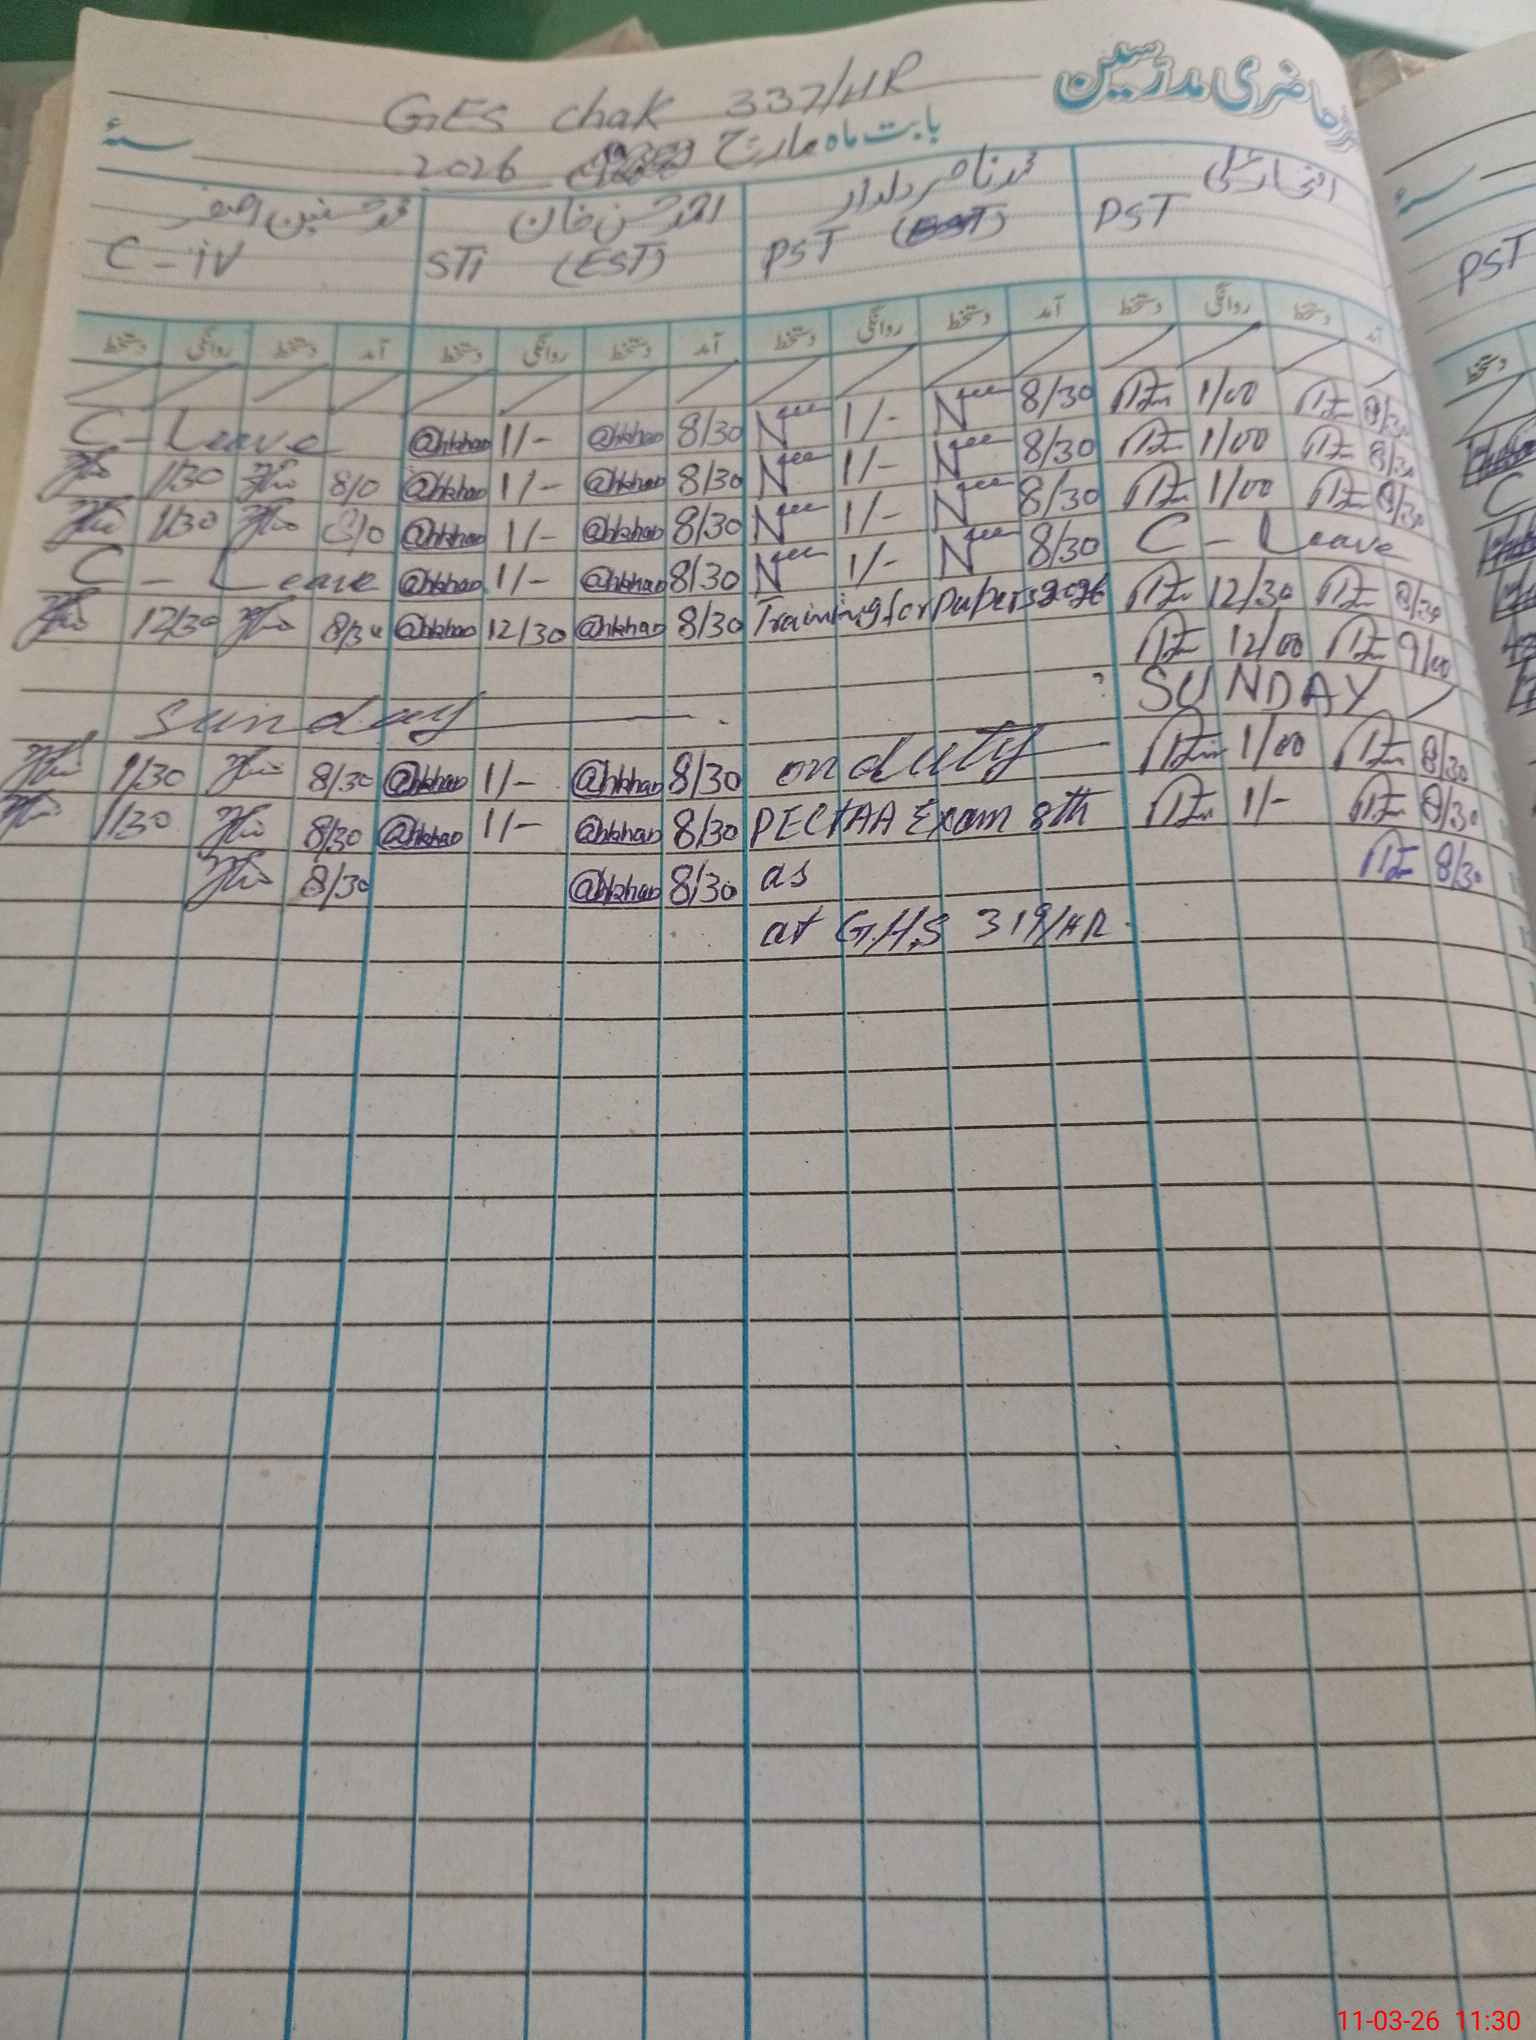 حاضری مدرسین
GES chak 337/HR
بابت ماہ مارچ 2026 سنہ
افتخار علی محمد ناصر دلدار احمد حسن خان محمد حسنین اصغر
C-iv STi (EST) PST PST
PST
دستخط روانگی دستخط آمد دستخط روانگی دستخط آمد دستخط روانگی دستخط آمد دستخط روانگی دستخط آمد
C-Leave @hkhan 1/- @hkhan 8/30 1/- 8/30 1/00 8/30
1/30 8/0 @hkhan 1/- @hkhan 8/30 1/- 8/30 1/00 8/30
1/30 8/0 @hkhan 1/- @hkhan 8/30 1/- 8/30 1/00 8/30
C-Leave @hkhan 1/- @hkhan 8/30 1/- 8/30 C-Leave
12/30 8/30 @hkhan 12/30 @hkhan 8/30 Training for papers 2026 12/30 8/30
12/00 9/00
sunday SUNDAY
1/30 8/30 @hkhan 1/- @hkhan 8/30 on duty 1/00 8/30
1/30 8/30 @hkhan 1/- @hkhan 8/30 PECTAA Exam 8th 1/- 8/30
8/30 @hkhan 8/30 as 8/30
at G.H.S 319/HR.
11-03-26 11:30